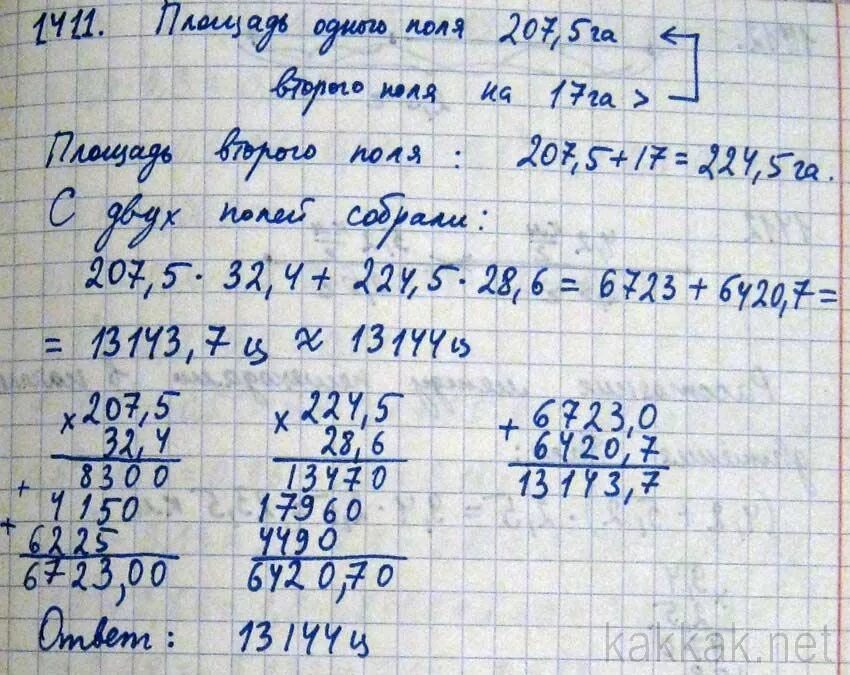 1411. Площадь одного поля 207,5 га
второго поля на 17 га >
Площадь второго поля : 207,5 + 17 = 224,5 га.
С двух полей собрали:
207,5 · 32,4 + 224,5 · 28,6 = 6723 + 6420,7 =
= 13143,7 ц ≈ 13144 ц
× 207,5
32,4
+ 8300
4150
+ 6225
6723,00
× 224,5
28,6
13470
17960
4490
6420,70
+ 6723,0
6420,7
13143,7
Ответ : 13144 ц
kakkak.net